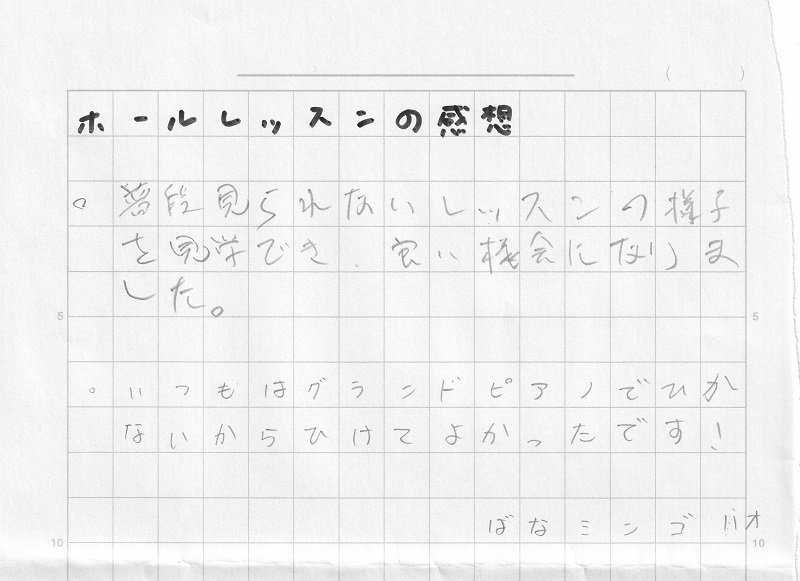 ホールレッスンの感想
。普段見られないレッスンの様子
を見学でき、良い機会になりま
した。
5 5
。いつもはグランドピアノでひか
ないからひけてよかったです!
ばなミンゴ
10 10